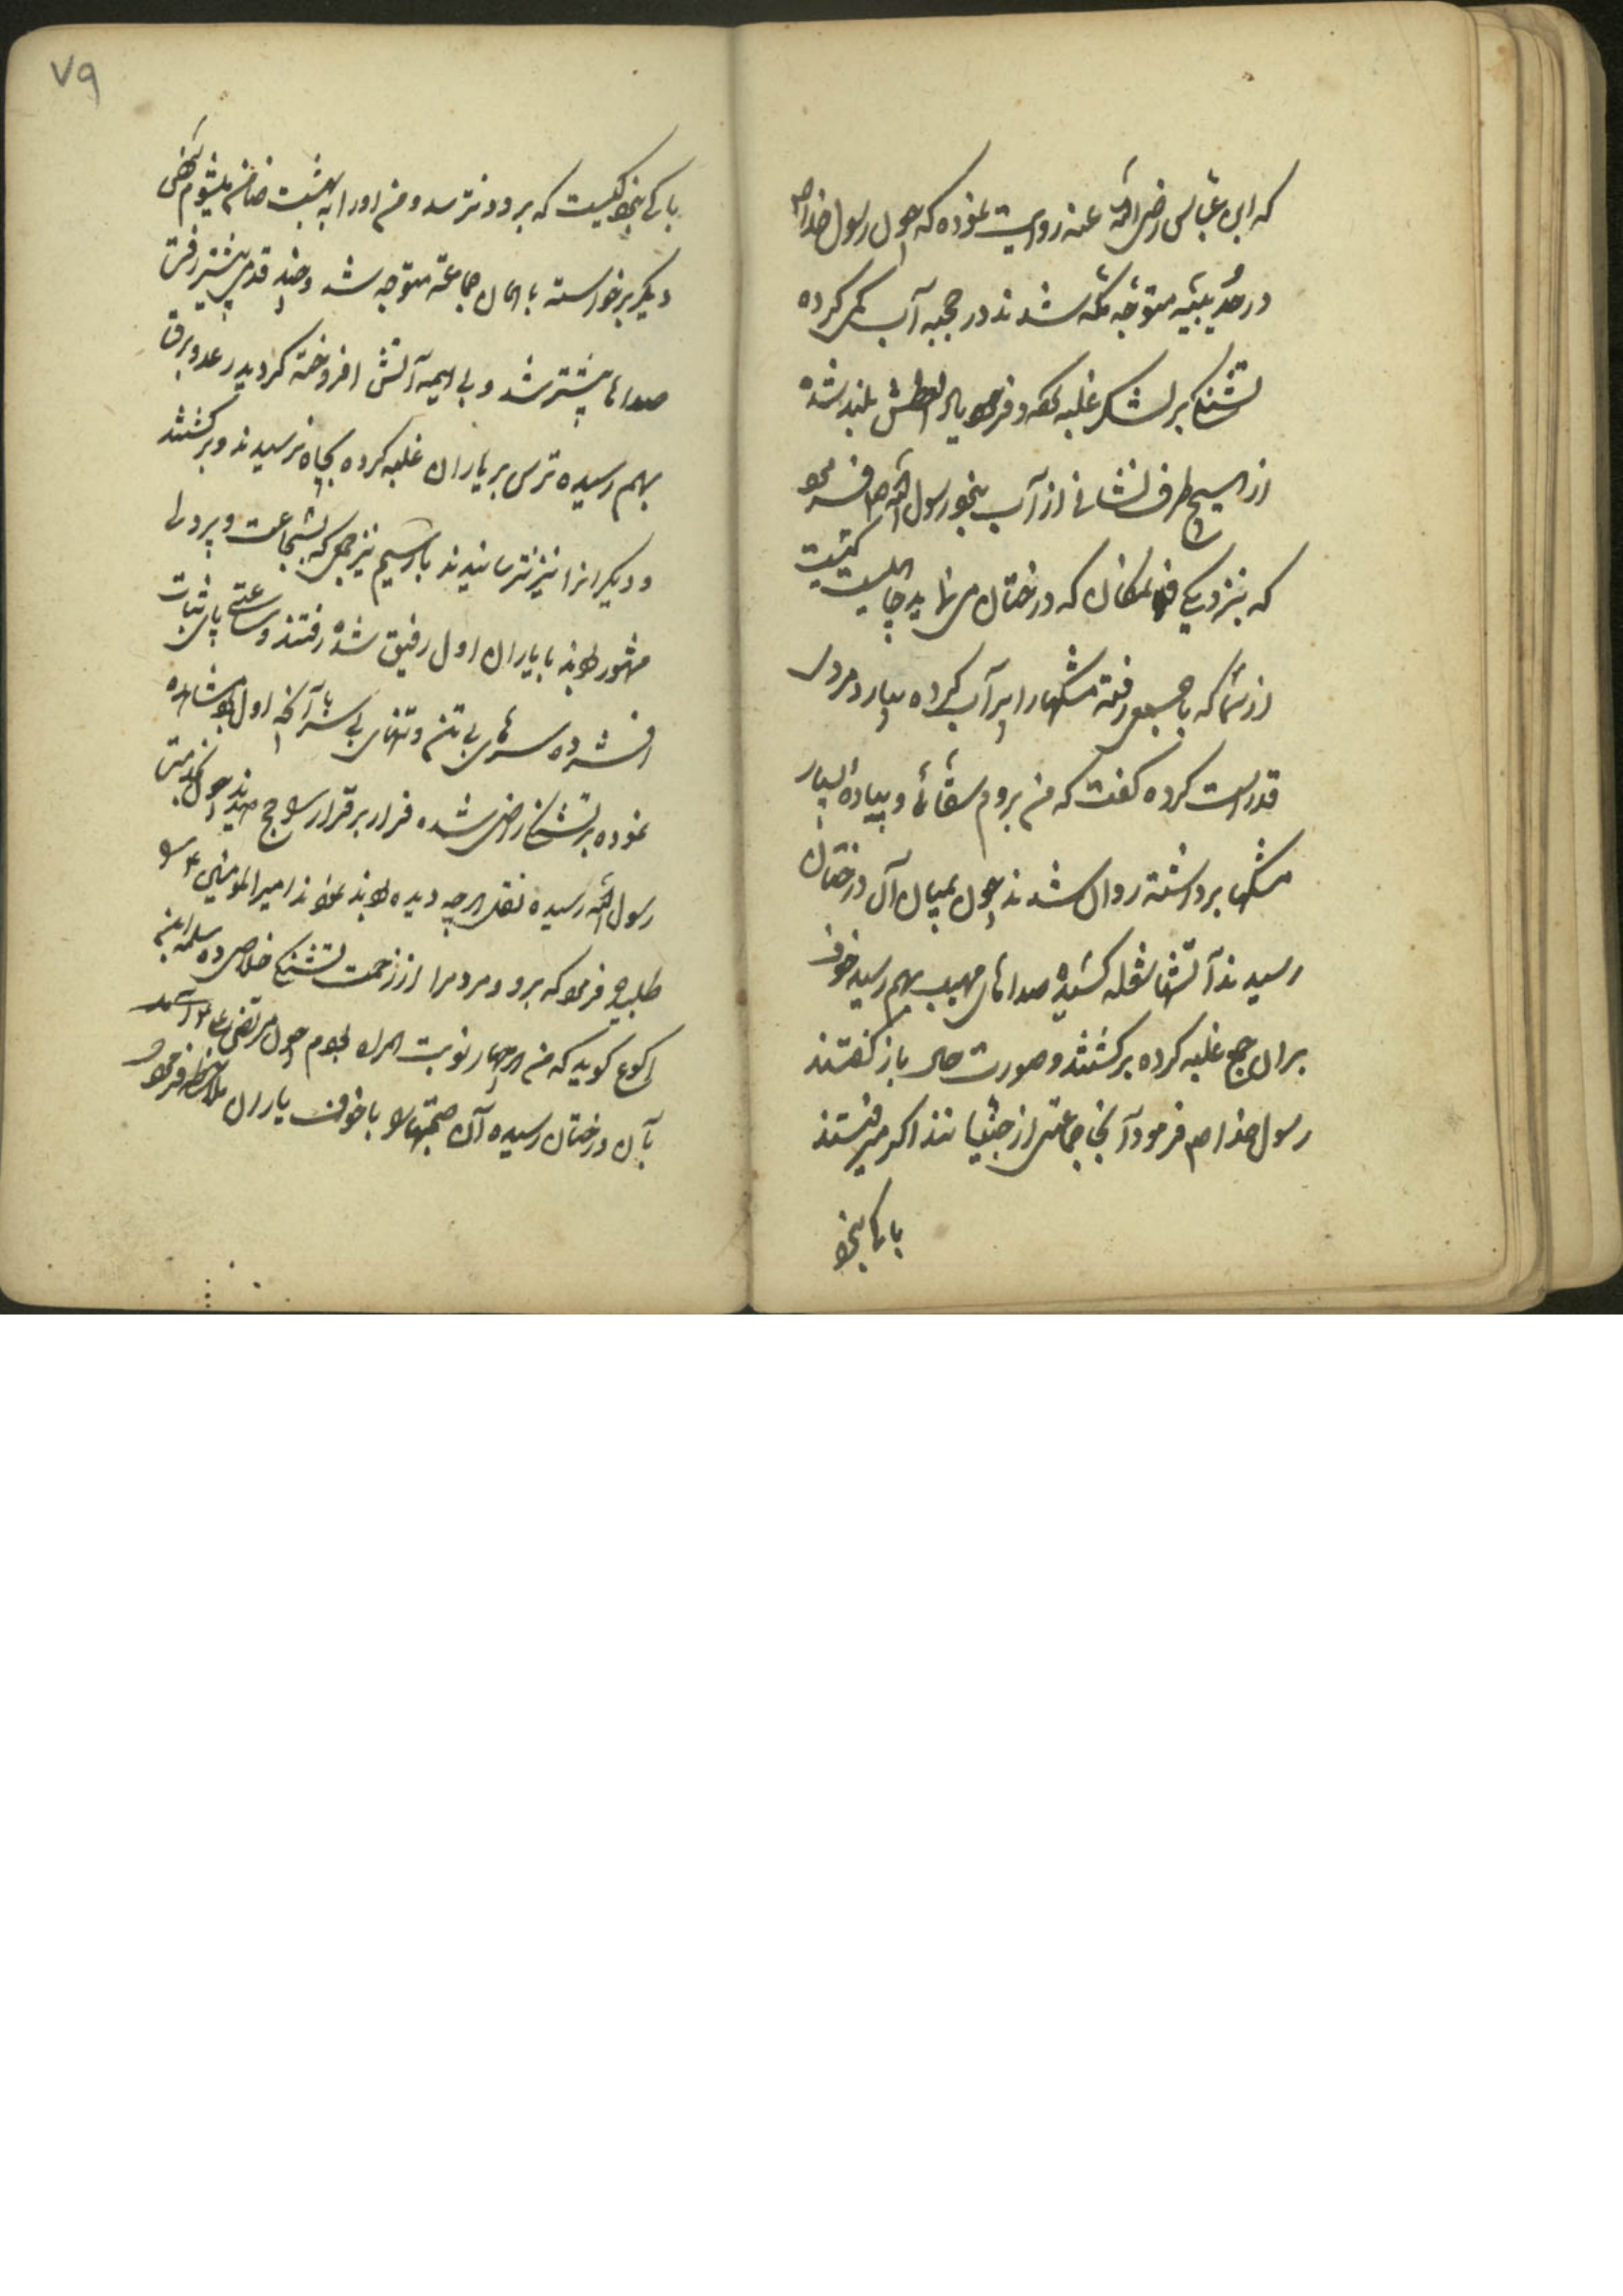 که ابن عباس رضی الله عنه روایت نموده که چون رسول خدا ص
در حدیبیه متوجه مکه شدند در جحبه آب کمی کرده
تشنگی بر لشکر غلبه نمود و فریاد العطش بلند شده
از هیچ طرف نشانی از آب نبود رسول الله ص فرمود
که بنزدیکی فلانمکان که درختان می نماید چاهیست کیست
از شما که با جمعی رفته مشکها را پر آب کرده بیارد مردی
قد راست کرده گفت که من بروم سقائی و پیاده بسیار
مشکها برداشته روان شدند چون بمیان آن درختان
رسیدند آتشها شعله کشیده صداهای مهیب بهم رسید خوف
بران جمع غلبه کرده برگشتند و صورت حال باز گفتند
رسول خدا ص فرمود آنجا جماعتی از جنیانند اگر میرفتند
باکی نبود
٧٩
باکی نبود کیست که برود و نترسد و من او را به بهشت ضامن میشوم شخصی
دیگر برخواسته با همان جماعة متوجه شد و چند قدمی پیشتر رفتن
صداها بیشتر شد و بی هیمه آتش افروخته گردید رعد و برق
بهم رسیده ترس بر یاران غلبه کرده بچاه نرسیدند و برگشتند
و دیگرانرا نیز ترسانیدند بار سیم نیز جمعی که بشجاعت و پردلی
مشهور بودند با یاران اول رفیق شده رفتند و ساعتی پای ثبات
افشرده سرهای بی تن و تنهای بی سر با آنچه اول بود مشاهده
نموده بر تشنگی راضی شده فرار بر قرار ترجیح دیدند چون بخدمت
رسول الله رسیده نقل هر چه دیده بودند نمودند امیر المومنین ع را
طلبید و فرمود که برو و مردم را از زحمت تشنگی خلاصی ده سلمه ابن
اکوع گوید که من هر چهار نوبت همراه بودم چون مرتضی علی ع
بآن درختان رسیده آن صحبتها را با خوف یاران ملاحظه فرمود